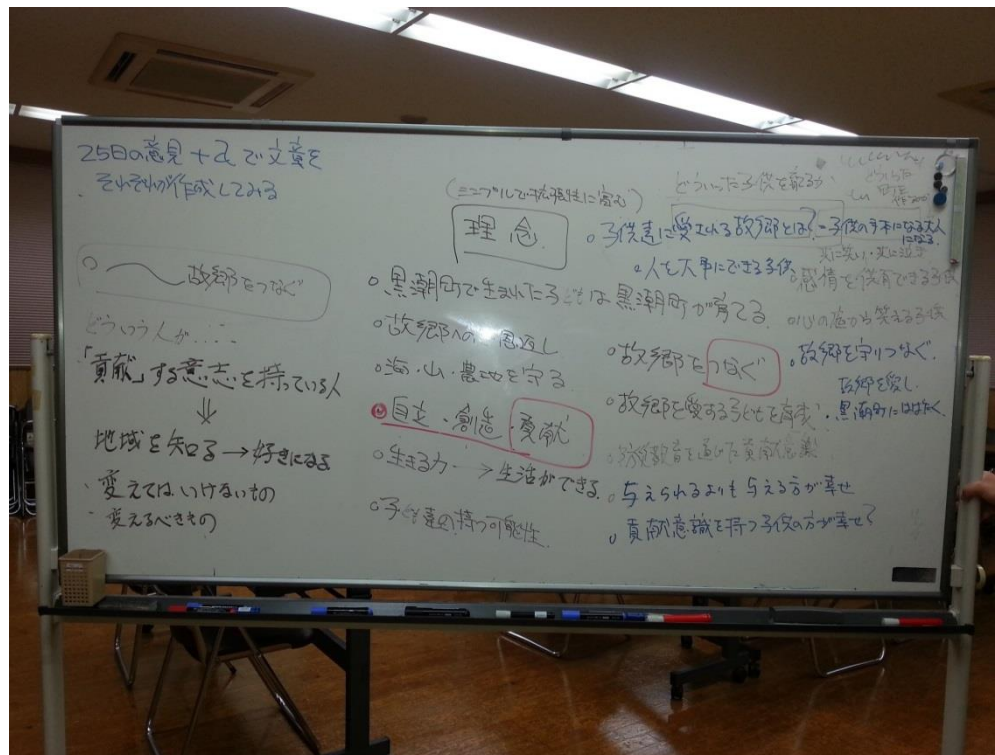 25日の意見+αで文章を
それぞれが作成してみる
○〜故郷をつなぐ
どういう人が....
「貢献」する意志を持っている人
⇓
地域を知る→好きになる
・変えてはいけないもの
・変えるべきもの
(シンプルで拡張性に富む)
理念
○黒潮町で生まれた子どもは黒潮町が育てる
○故郷への恩返し
○海・山・農地を守る
◎自立・創造・貢献
○生きる力→生活ができる
○子ども達の持つ可能性
どういった子供を育るか
○子供達に愛される故郷とは?=子供の手本になる大人
になる
○人を大事にできる子供
共に笑い・共に泣き
○感情を供有できる子供
○心の底から笑える子供
○故郷をつなぐ
○故郷を守りつなぐ
故郷を愛し
・黒潮町にはばたく
○故郷を愛する子どもを育む
○防災教育を通じた貢献
○与えられるよりも与える方が幸せ
○貢献意識を持つ子供の方が幸せ?